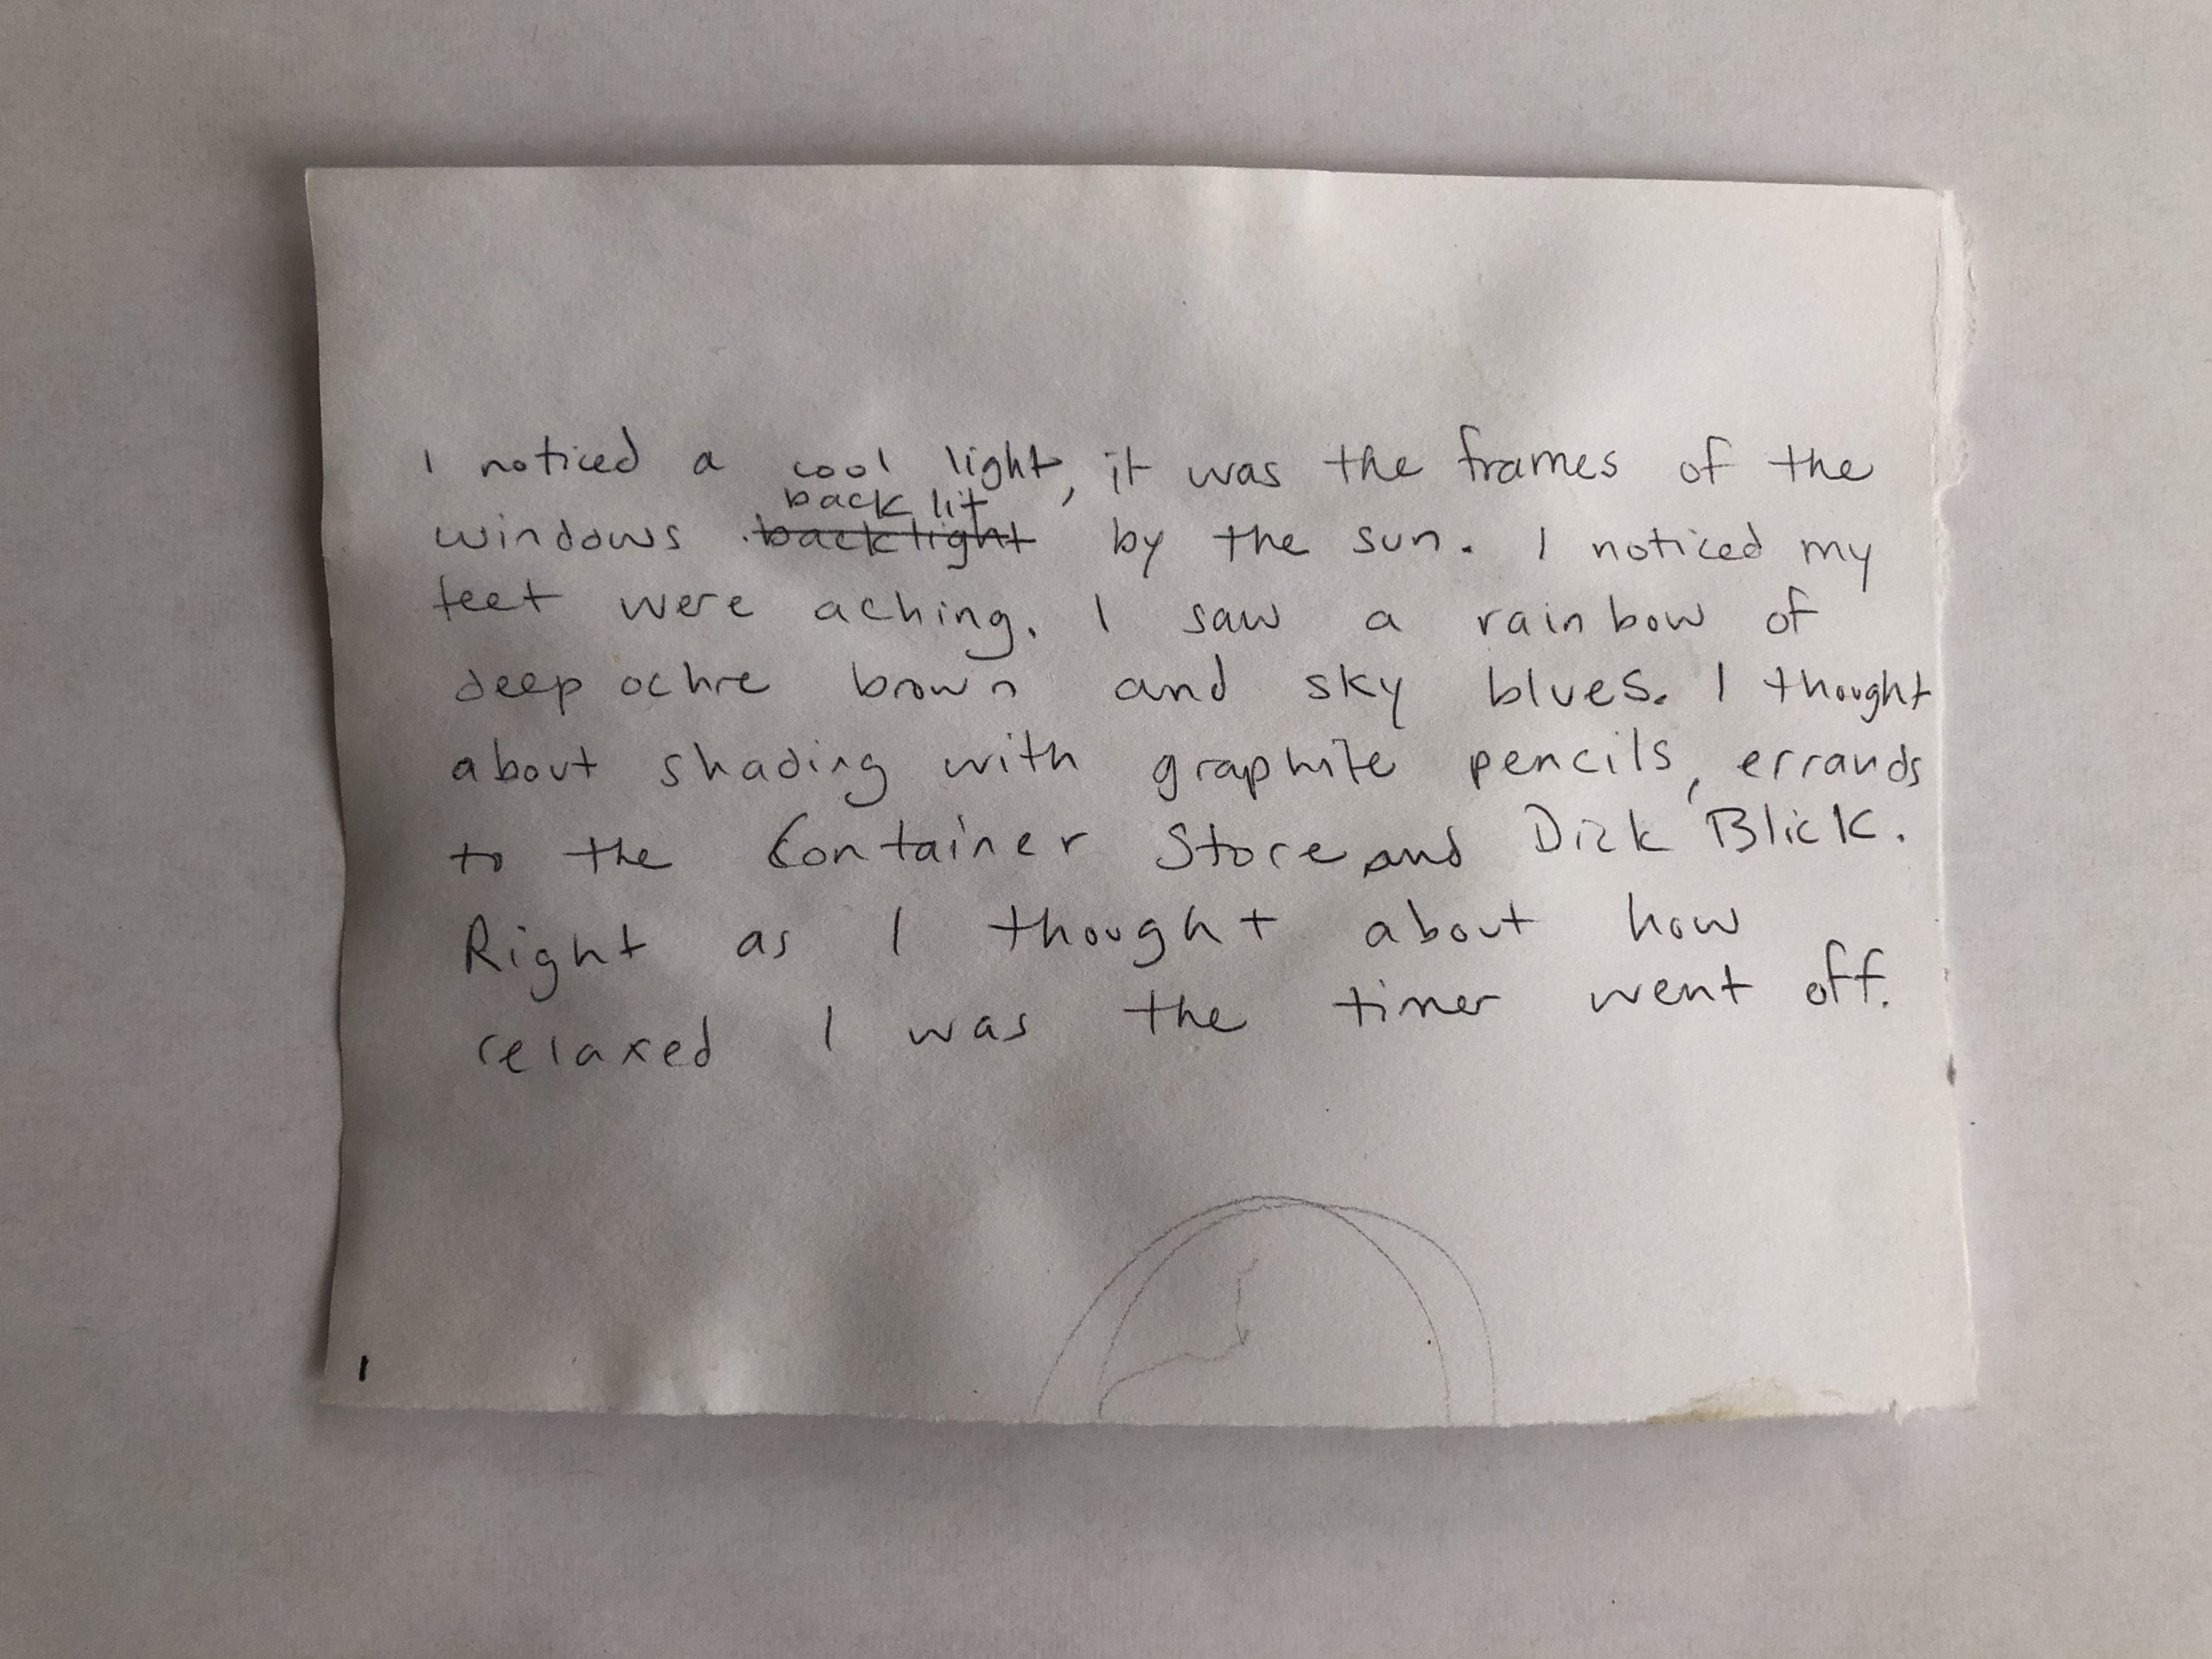 I noticed a cool light, it was the frames of the
back lit
windows backlight by the sun. I noticed my
feet were aching. I saw a rainbow of
deep ochre brown and sky blues. I thought
about shading with graphite pencils, errands
to the Container Store and Dick Blick.
Right as I thought about how
relaxed I was the timer went off.
1